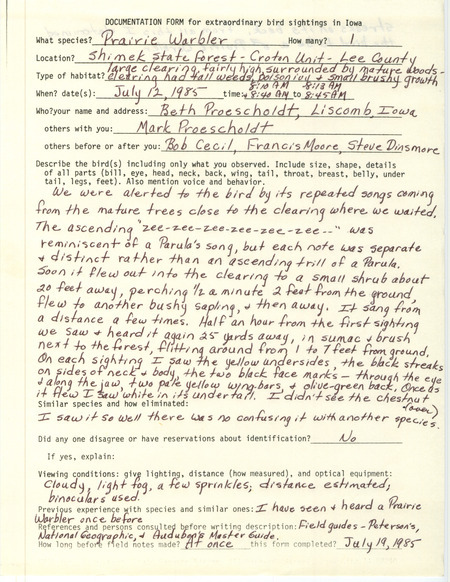 DOCUMENTATION FORM for extraordinary bird sightings in Iowa
What species? Prairie Warbler How many? 1
Location? Shimek State Forest - Croton Unit - Lee County
large clearing, fairly high, surrounded by mature woods -
Type of habitat? clearing had tall weeds, poison ivy & small brushy growth
8:10 AM 8:13 AM
When? date(s): July 12, 1985 time: & 8:40 AM to 8:45 AM
Who? your name and address: Beth Proescholdt, Liscomb, Iowa
others with you: Mark Proescholdt
others before or after you: Bob Cecil, Francis Moore, Steve Dinsmore
Describe the bird(s) including only what you observed. Include size, shape, details
of all parts (bill, eye, head, neck, back, wing, tail, throat, breast, belly, under
tail, legs, feet). Also mention voice and behavior.
We were alerted to the bird by its repeated songs coming
from the mature trees close to the clearing where we waited.
The ascending "zee-zee-zee-zee-zee-zee--" was
reminiscent of a Parula's song, but each note was separate
& distinct rather than an ascending trill of a Parula.
Soon it flew out into the clearing to a small shrub about
20 feet away, perching ½ a minute 2 feet from the ground,
flew to another bushy sapling, & then away. It sang from
a distance a few times. Half an hour from the first sighting
we saw & heard it again 25 yards away, in sumac & brush
next to the forest, flitting around from 1 to 7 feet from ground.
On each sighting I saw the yellow undersides, the black streaks
on sides of neck & body, the two black face marks - through the eye
& along the jaw, two pale yellow wing-bars, & olive-green back. Once as
it flew I saw white in its under tail. I didn't see the chestnut
Similar species and how eliminated: (over)
I saw it so well there was no confusing it with another species.
Did any one disagree or have reservations about identification? No
If yes, explain:
Viewing conditions: give lighting, distance (how measured), and optical equipment:
Cloudy, light fog, a few sprinkles; distance estimated,
binoculars used.
Previous experience with species and similar ones: I have seen & heard a Prairie
Warbler once before
References and persons consulted before writing description: Field guides - Peterson's,
National Geographic, & Audubon's Master Guide.
How long before field notes made? At once this form completed? July 19, 1985